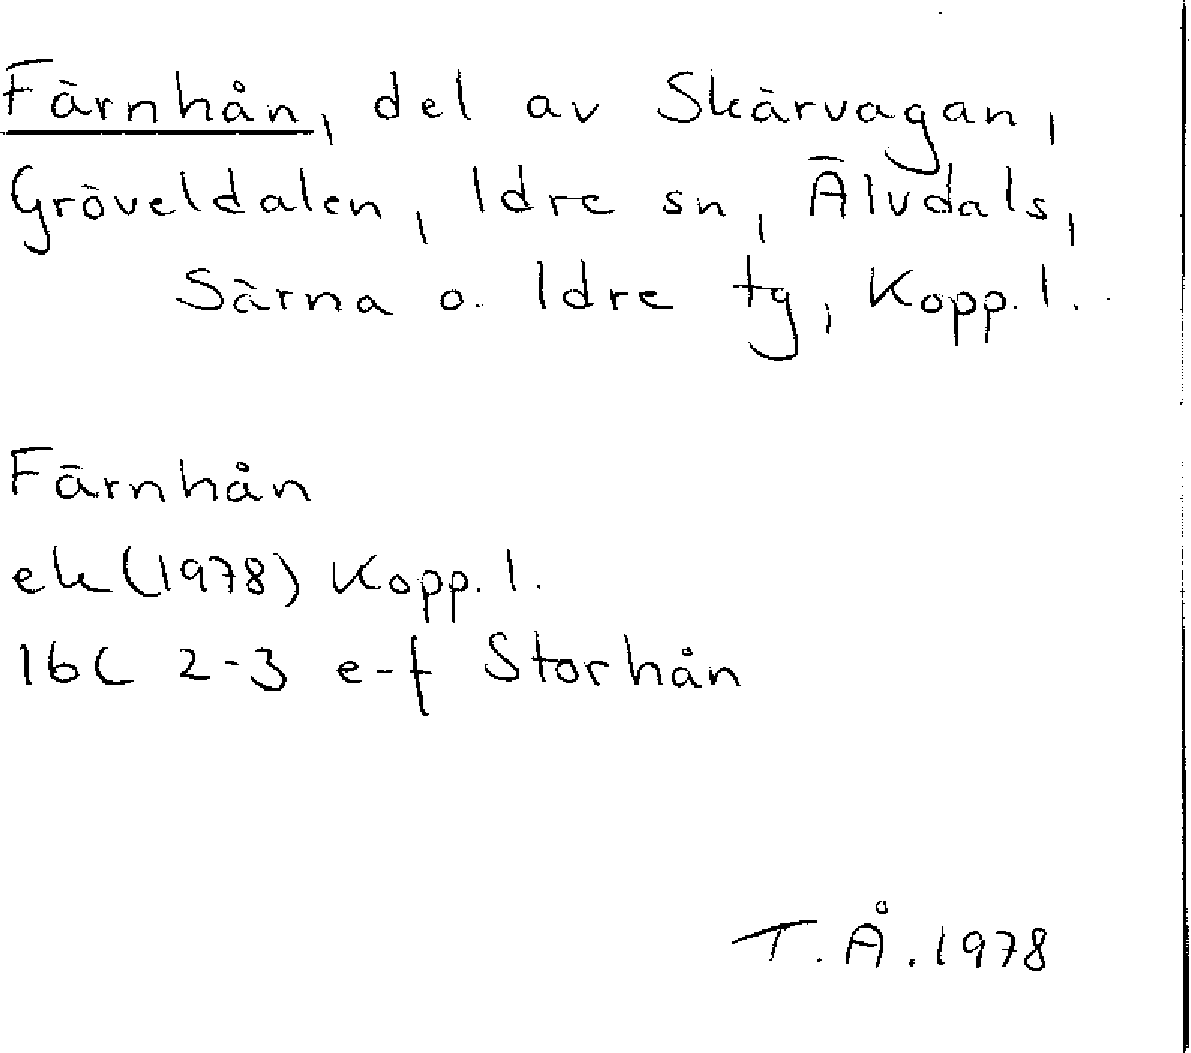 Färnhån, del av Skärvagan,
Gröveldalen, Idre sn, Älvdals,
Särna o. Idre tg, Kopp. l.
Färnhån
ek (1978) Kopp. l.
16C 2-3 e-f Storhån
T. Å. 1978